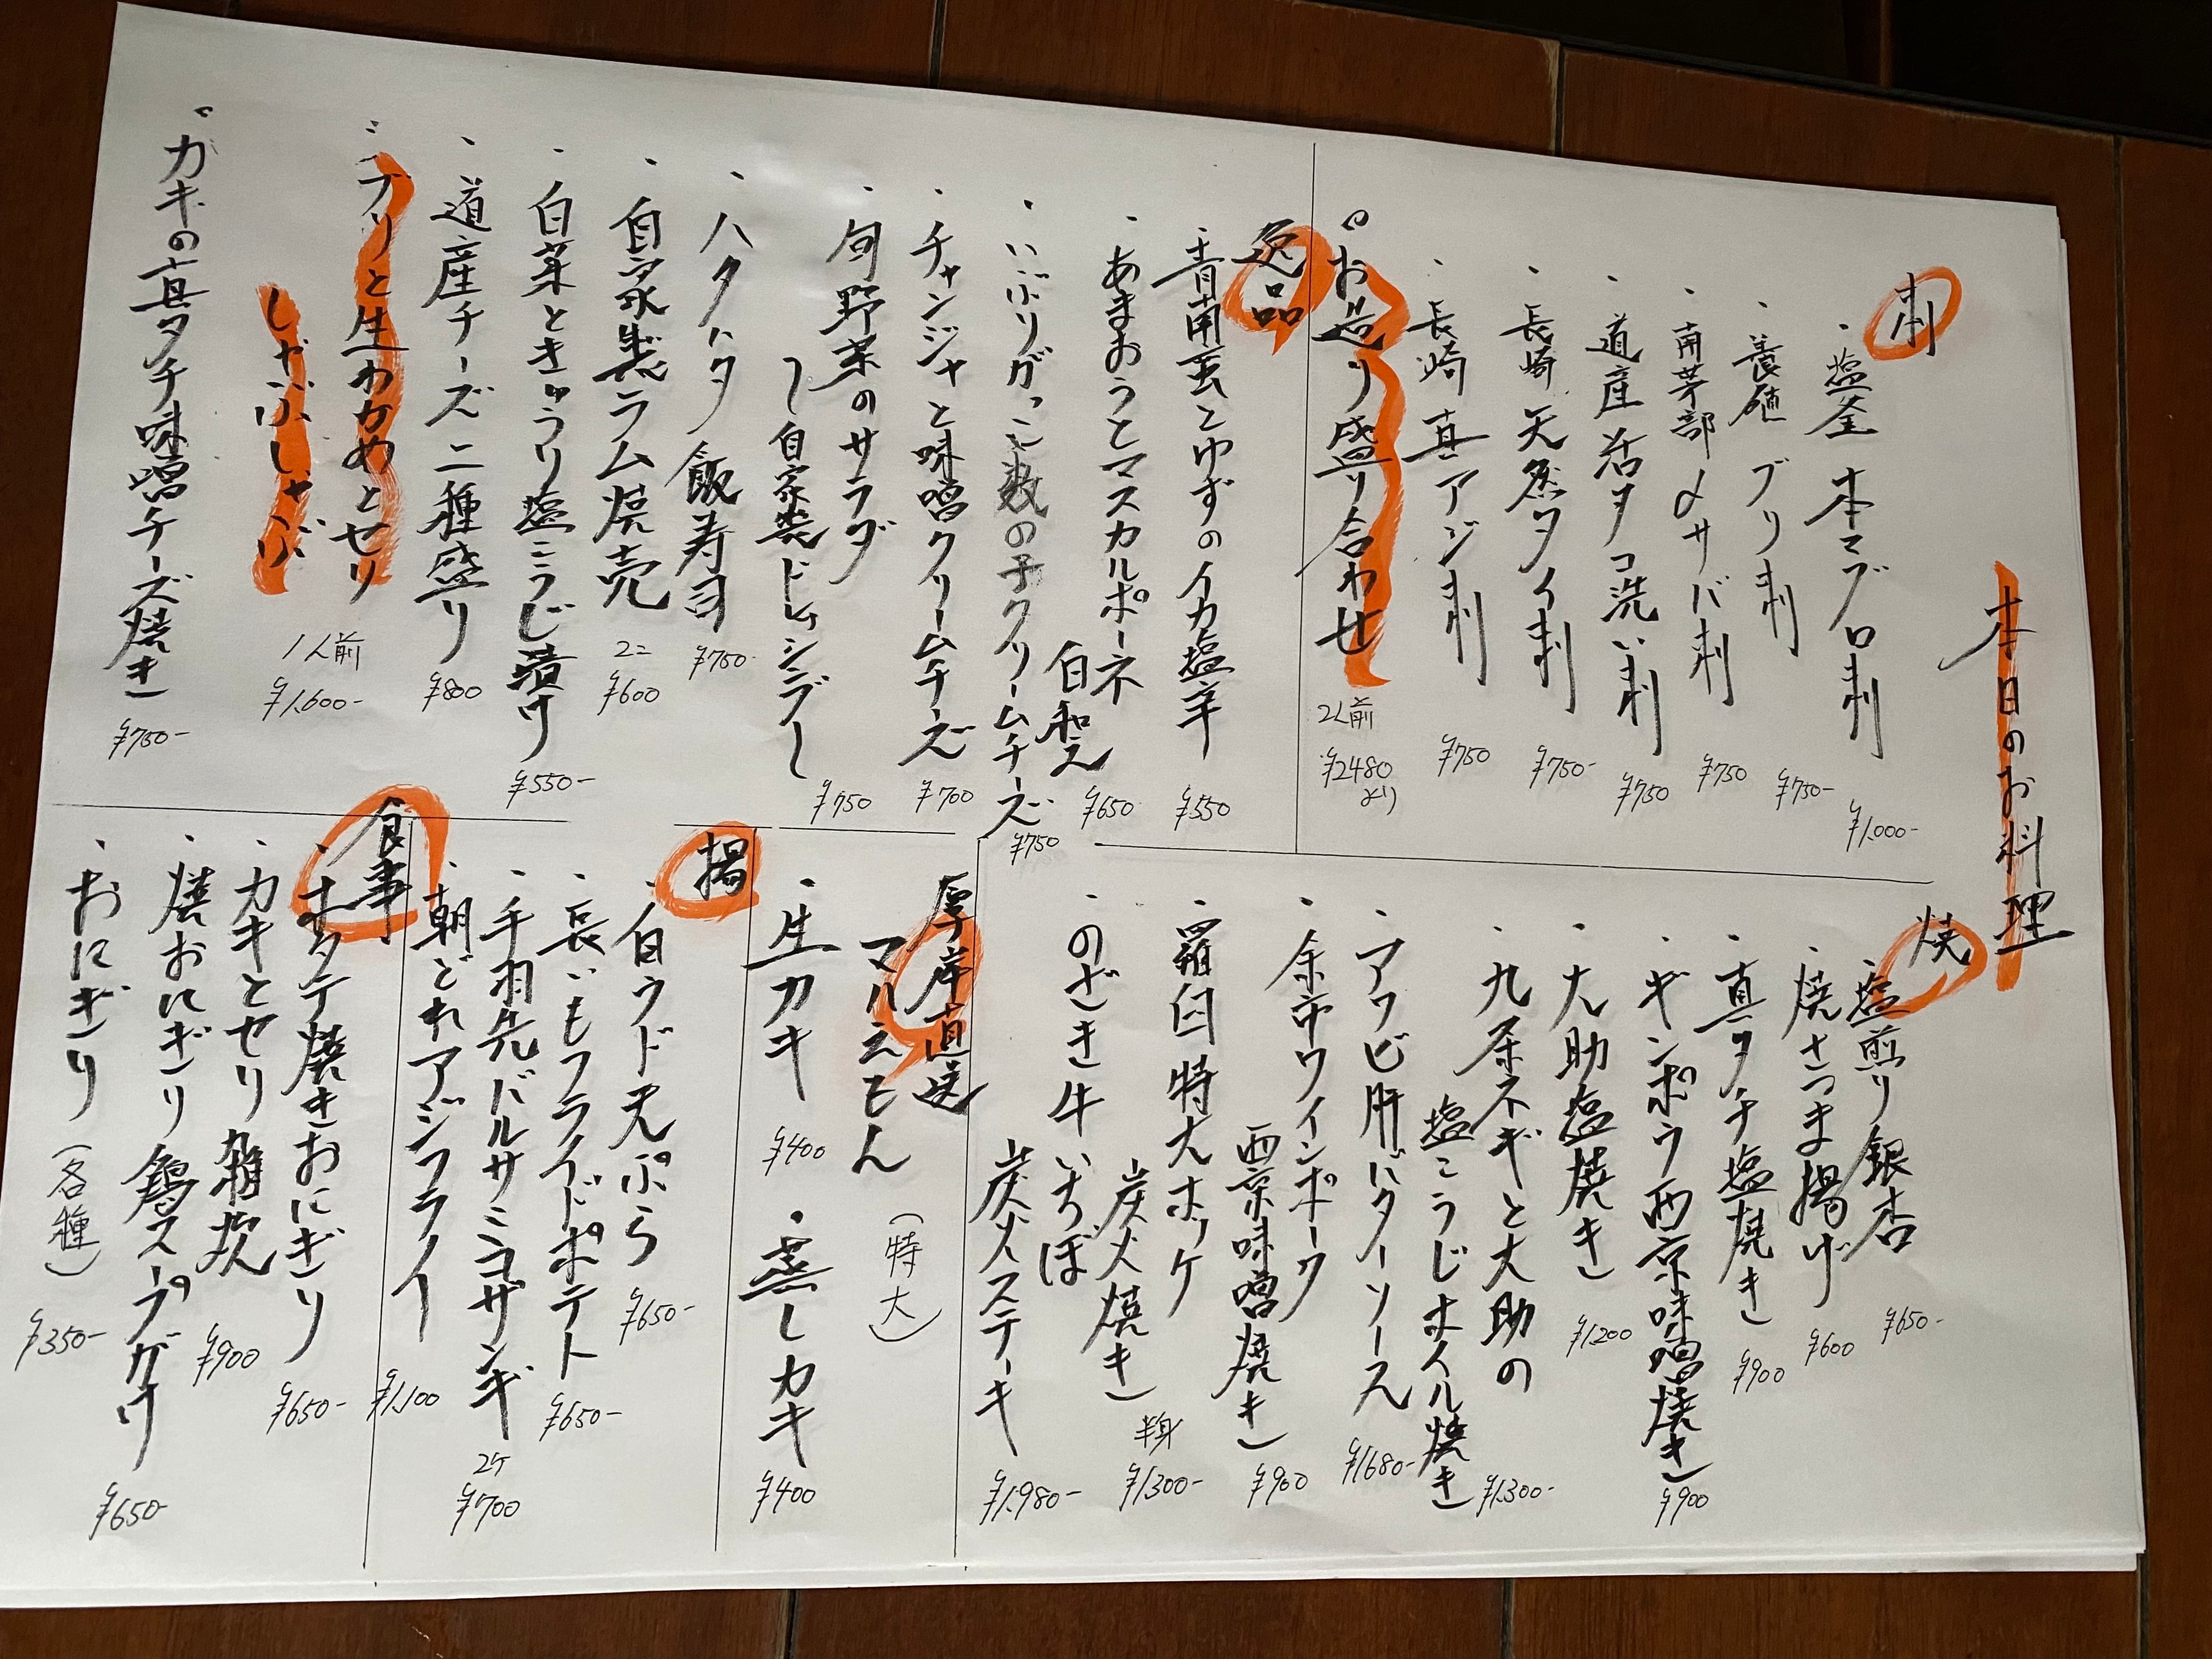 本日のお料理
刺
・塩釜 本マグロ刺 ¥1,000-
・養殖 ブリ刺 ¥750-
・南芽部〆サバ刺 ¥750
・道産活タコ洗い刺 ¥750
・長崎 天然タイ刺 ¥750-
・長崎 真アジ刺 ¥750
お造り盛り合わせ 2人前 ¥2480より
逸品
・青南蛮とゆずのイカ塩辛 ¥550
・あまおうとマスカルポーネ
白和え ¥650
・いぶりがっこ数の子クリームチーズ ¥750
・チャンジャと味噌クリームチーズ ¥700
・旬野菜のサラダ
〜自家製ドレッシング〜 ¥750
・ハタハタ飯寿司 ¥750-
・自家製ラム焼売 2コ ¥600
・白菜ときゅうり塩こうじ漬け ¥550-
・道産チーズ二種盛り ¥800
・ブリと生わかめとセリ
しゃぶしゃぶ 1人前 ¥1,600-
・カキの真タチ味噌チーズ焼き ¥750-
焼
・塩煎り銀杏 ¥650-
・焼さつま揚げ ¥600
・真タチ塩焼き ¥900
・ギンポウ西京味噌焼き ¥900
・大助塩焼き ¥1,200
・九条ネギと大助の
塩こうじホイル焼き ¥1,300-
・アワビ肝バターソース ¥1680-
・余市ワインポーク
西京味噌焼き ¥900
・羅臼特大ホッケ
炭火焼き 半身 ¥1,300-
・のざき牛いちぼ
炭火ステーキ ¥1,980-
厚岸直送
マルえもん（特大）
・生カキ ¥400
・蒸しカキ ¥400
揚
・白ウド天ぷら ¥650-
・長いもフライドポテト ¥650-
・手羽先バルサミコザンギ 2ケ ¥700
・朝どれアジフライ ¥1,100
食事
・ホタテ焼きおにぎり ¥650-
・カキとセリ雑炊 ¥900
・焼おにぎり鶏スープがけ ¥650-
・おにぎり（各種） ¥350-